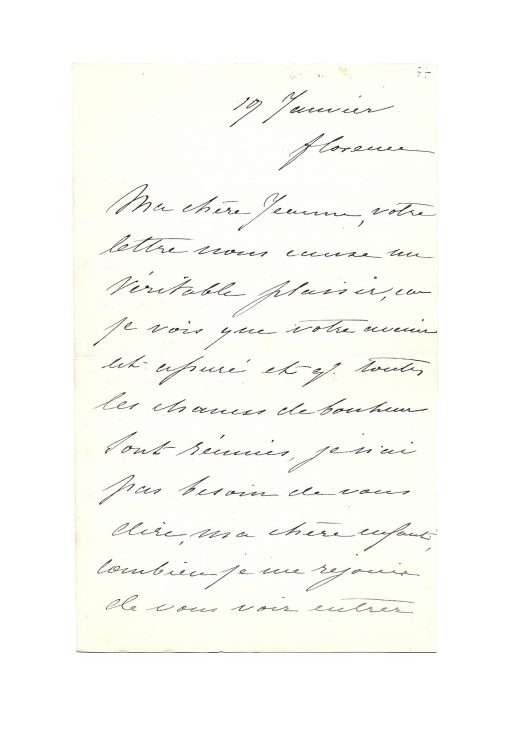 19 Janvier
florence
Ma chère Jeanne, votre
lettre nous cause un
véritable plaisir, car
je vois que votre avenir
est assuré et q. toutes
les chances de bonheur
sont réunies, je n'ai
pas besoin de vous
dire, ma chère enfant,
combien je me réjouis
de vous voir entrer